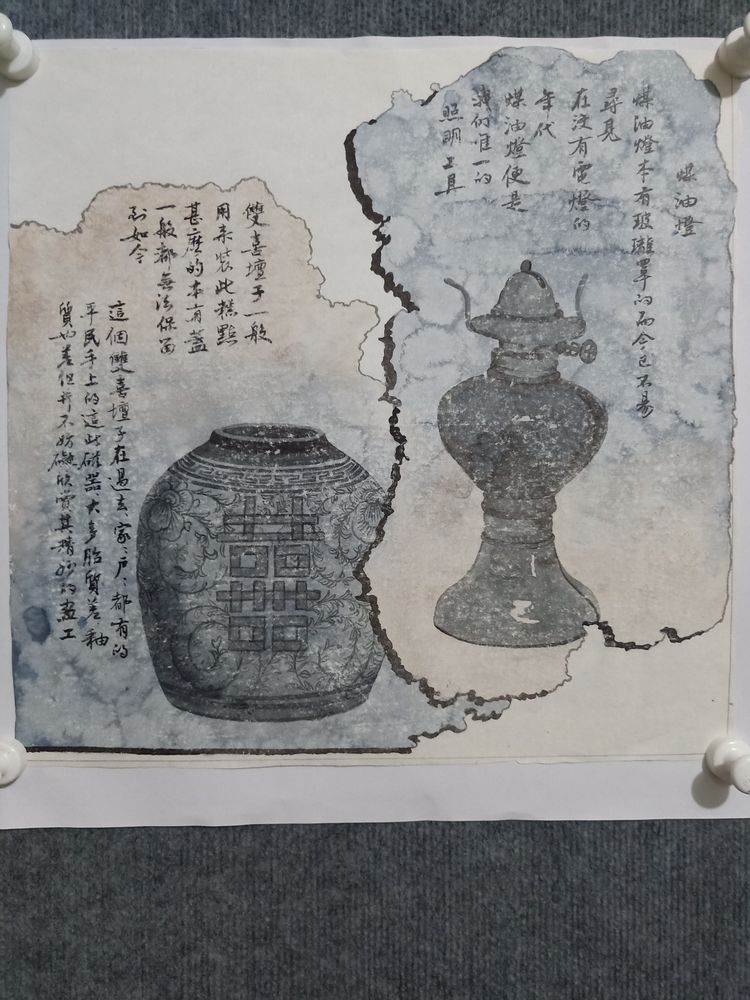 煤油燈
煤油燈本有玻璃罩的而今已不易
尋見
在沒有電燈的
年代
煤油燈便是
我們唯一的
照明工具
雙喜壇子一般
用來裝此糕點
甚麽的本有蓋
一般都無法保留
到如今
這個雙喜壇子在過去家家戶戶都有的
平民手上的這些磁器大多胎質差釉
質也差但并不妨礙欣賞其精妙的畫工